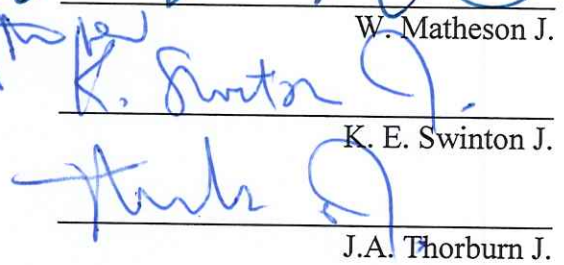 W. Matheson J.
K. Swinton J.
K. E. Swinton J.
J.A. Thorburn J.